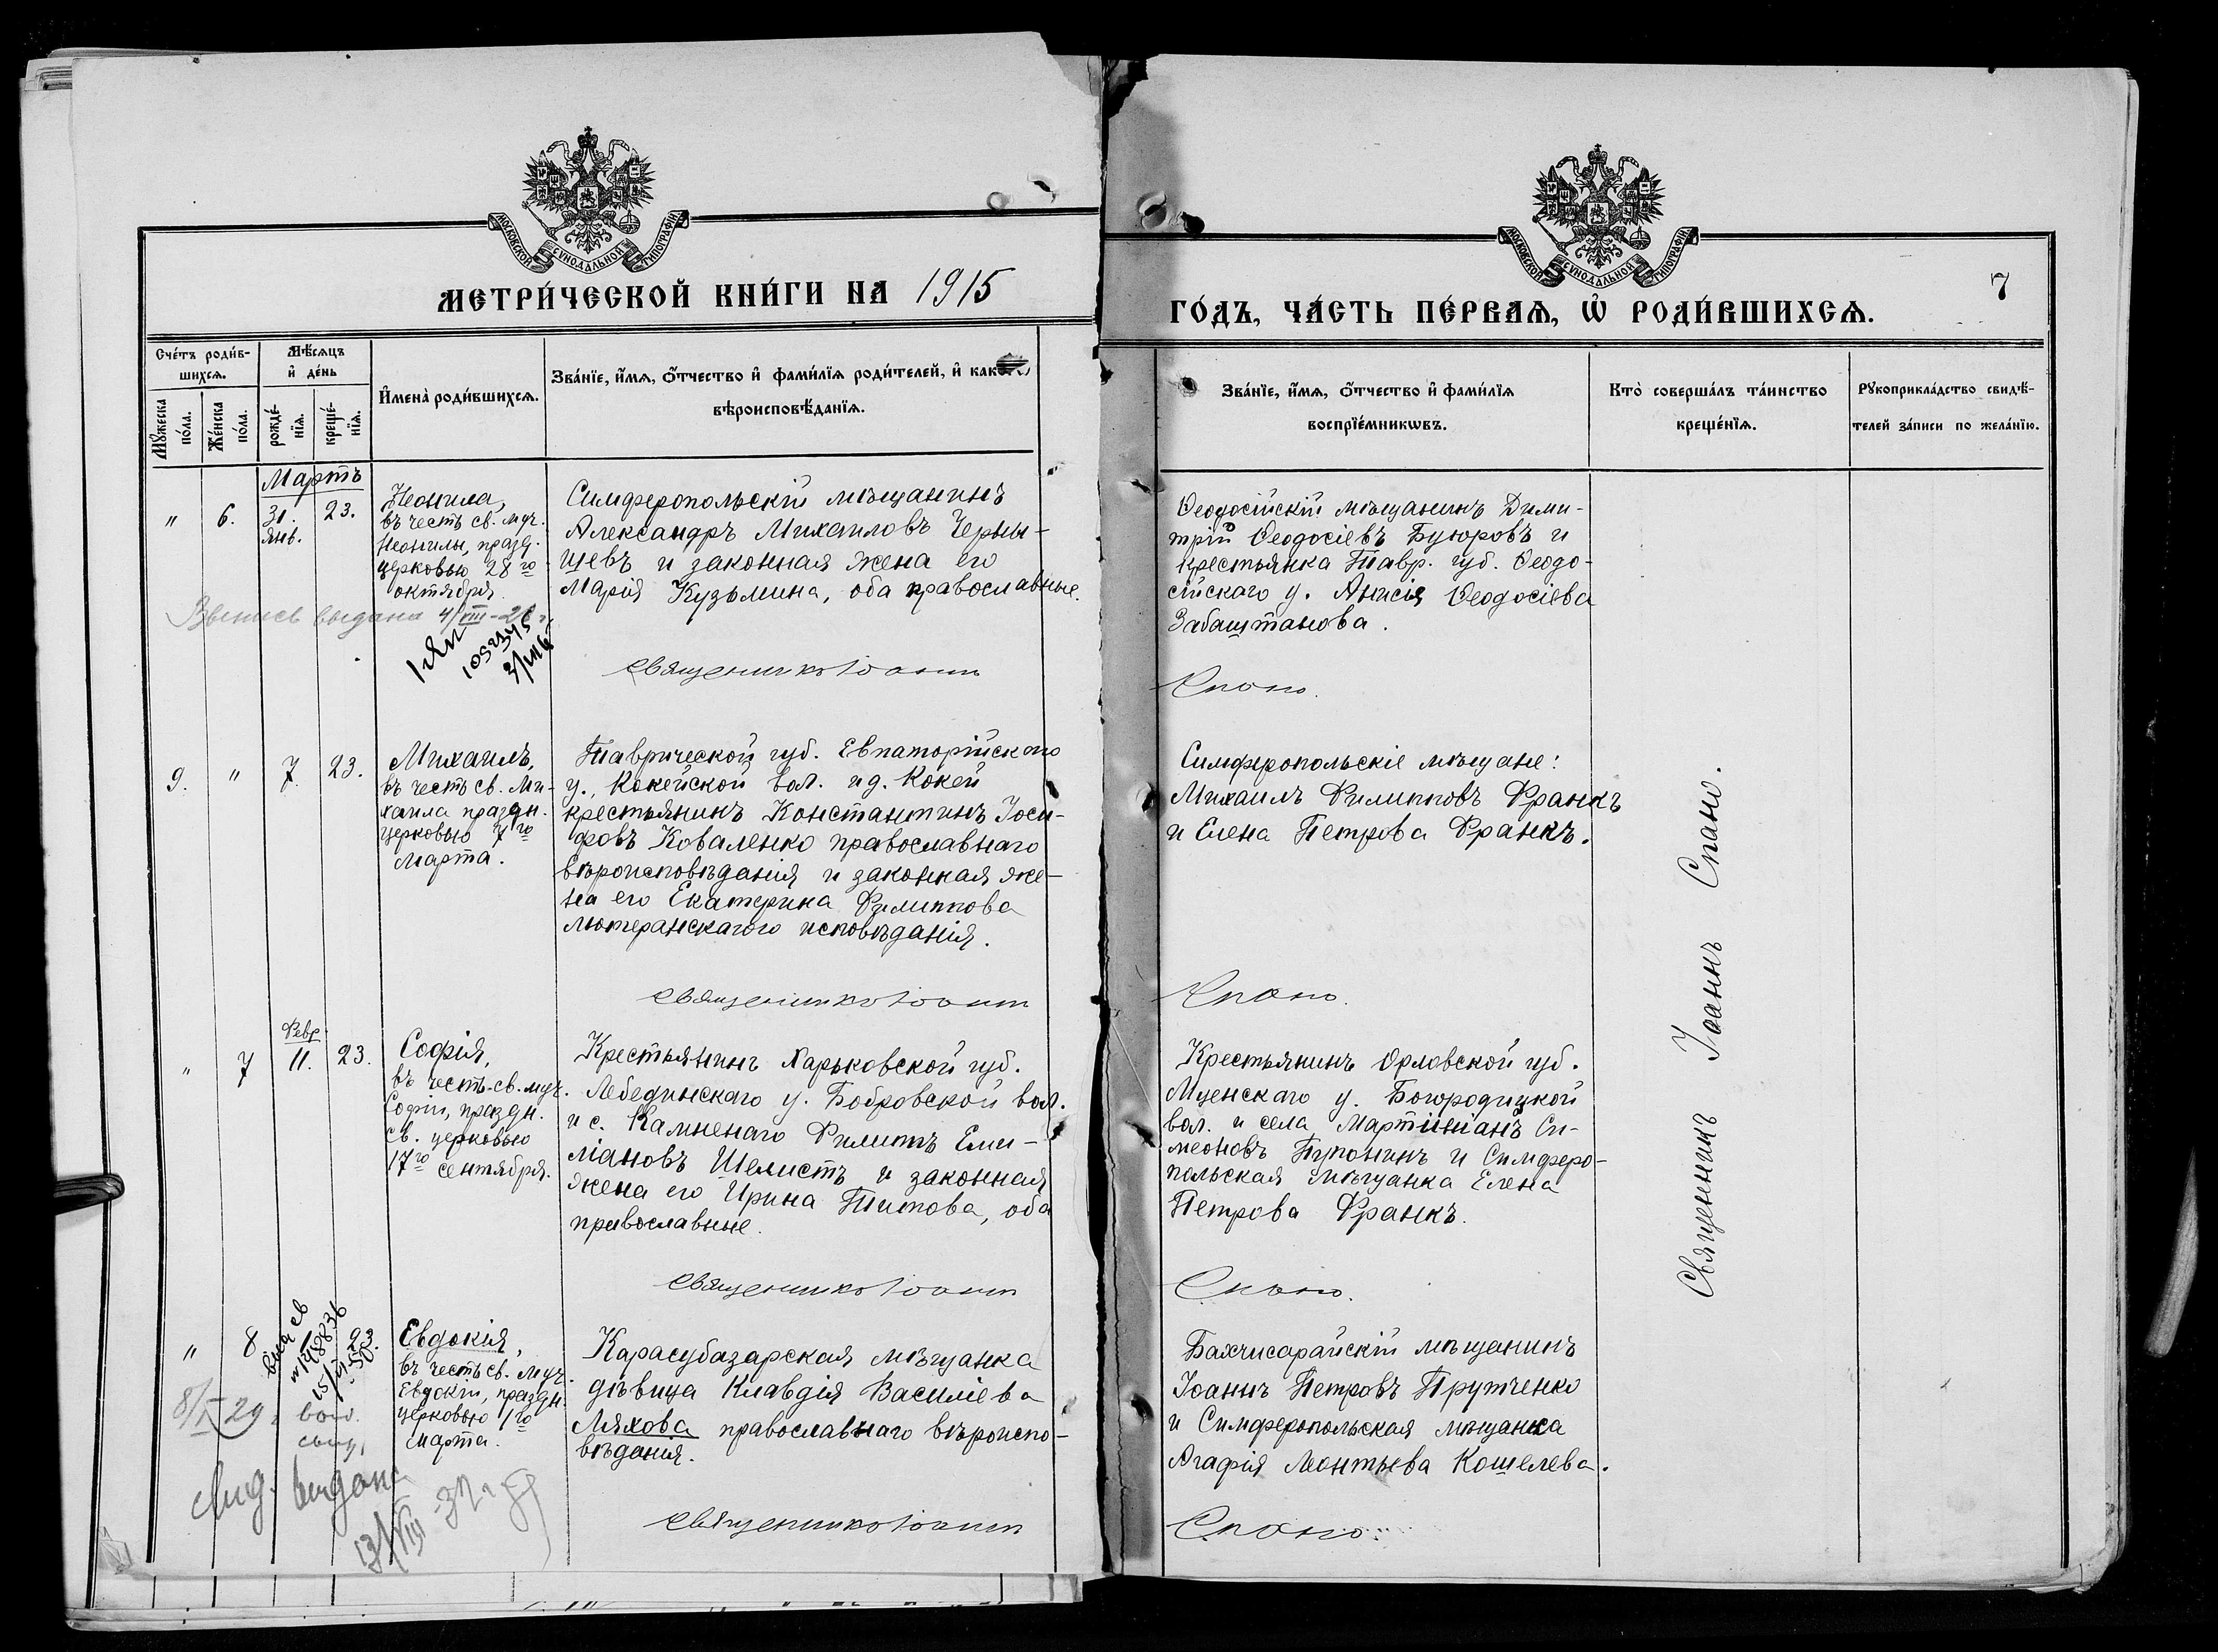 МОСКОВСКОЙ СѴНОДАЛЬНОЙ ТИПОГРАФІИ
МЕТРИ́ЧЕСКОЙ КНИ́ГИ НА 1915
Сче́тъ роди́в-
шихсѧ.
Мѣ́сѧцъ
и҆ де́нь
Мꙋ́жеска
по́ла.
Же́нска
по́ла.
рожде́-
нїѧ.
креще́-
нїѧ.
И҆мена̀ роди́вшихсѧ.
Зва́нїе, и҆́мѧ, ѻ҆́тчество и҆ фами́лїѧ роди́телей, и҆ како́гѡ
вѣроисповѣ́данїѧ.
Мартъ
"
6.
31.
Янв.
23.
Неонила,
въ честь св. муч.
Неонилы, празд.
церковью 28го
октября.
Симферопольскій мѣщанинъ
Александръ Михаиловъ Черны-
щевъ и законная жена его
Марія Кузьмина, оба православные.
Выпись выдана 4/VIII-26 г.
Священникъ Іоаннъ
9.
"
7.
23.
Михаилъ,
въ честь св. Ми-
хаила праздн.
церковью 7го
марта.
Таврической губ. Евпаторійскаго
у., Кокейской вол. и д. Кокей
крестьянинъ Константинъ Іоси-
фовъ Коваленко православнаго
вѣроисповѣданія и законная же-
на его Екатерина Филиппова
лютеранскагого исповѣданія.
Священникъ Іоаннъ
"
7
Февр
11.
23.
Софія,
въ честь св. муч.
Софіи, праздн.
св. церковью
17го сентября.
Крестьянинъ Харьковской губ.
Лебединскаго у. Бобровской вол.
и с. Камненаго Филиппъ Еми-
ліановъ Шелистъ и законная
жена его Ирина Титова, оба
православные.
Священникъ Іоаннъ
"
8
23.
Евдокія,
въ честь св. муч.
Евдокіи, праздн.
церковью 1го
марта.
Карасубазарская мѣщанка
дѣвица Клавдія Василіева
Ляхова православнаго вѣроиспо-
вѣданія.
свид. выдана
Священникъ Іоаннъ
МОСКОВСКОЙ СѴНОДАЛЬНОЙ ТИПОГРАФІИ
7
ГО́ДЪ, ЧА́СТЬ ПЕ́РВАѦ, Ѡ҆ РОДИ́ВШИХСѦ.
Зва́нїе, и҆́мѧ, ѻ҆́тчество и҆ фами́лїѧ
воспрїе́мникѡвъ.
Кто̀ соверша́лъ та́инство
креще́нїѧ.
Рꙋкоприкла́дство свидѣ́-
телей за́писи по жела́нїю.
Ѳеодосійскій мѣщанинъ Дими-
трій Ѳеодосіевъ Бугоровъ и
крестьянка Тавр. губ. Ѳеодо-
сійскаго у. Анисія Ѳеодосіева
Забаштанова.
Спано.
Симферопольскіе мѣщане:
Михаилъ Филипповъ Франкъ
и Елена Петрова Франкъ.
Спано.
Крестьянинъ Орловской губ.
Мценскаго у. Богородицкой
вол. и села Мартініанъ Си-
меоновъ Тупонинъ и Симферо-
польская мѣщанка Елена
Петрова Франкъ.
Спано.
Бахчисарайскій мѣщанинъ
Іоаннъ Петровъ Прутченко
и Симферопольская мѣщанка
Агафія Леонтьева Кошелева.
Спано.
Священникъ Іоаннъ Спано.